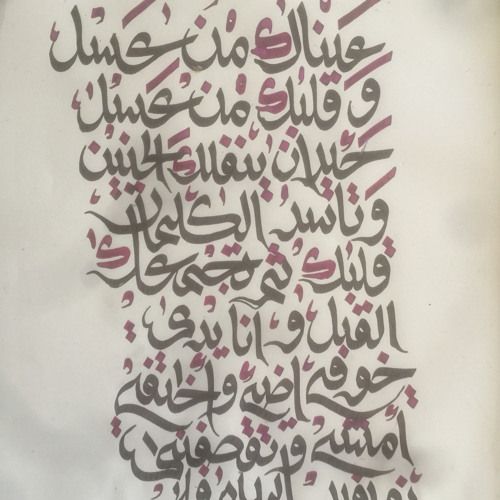 عيناك من عسل
وقلبك من عسل
حيران ينقلك الحنين
وتأسر الكلمات
قلبك ثم تجتمعك
القبل وأنا يدي
خوفي أضيء وأختفي
أمشي وتقصفني
الرياح ولا